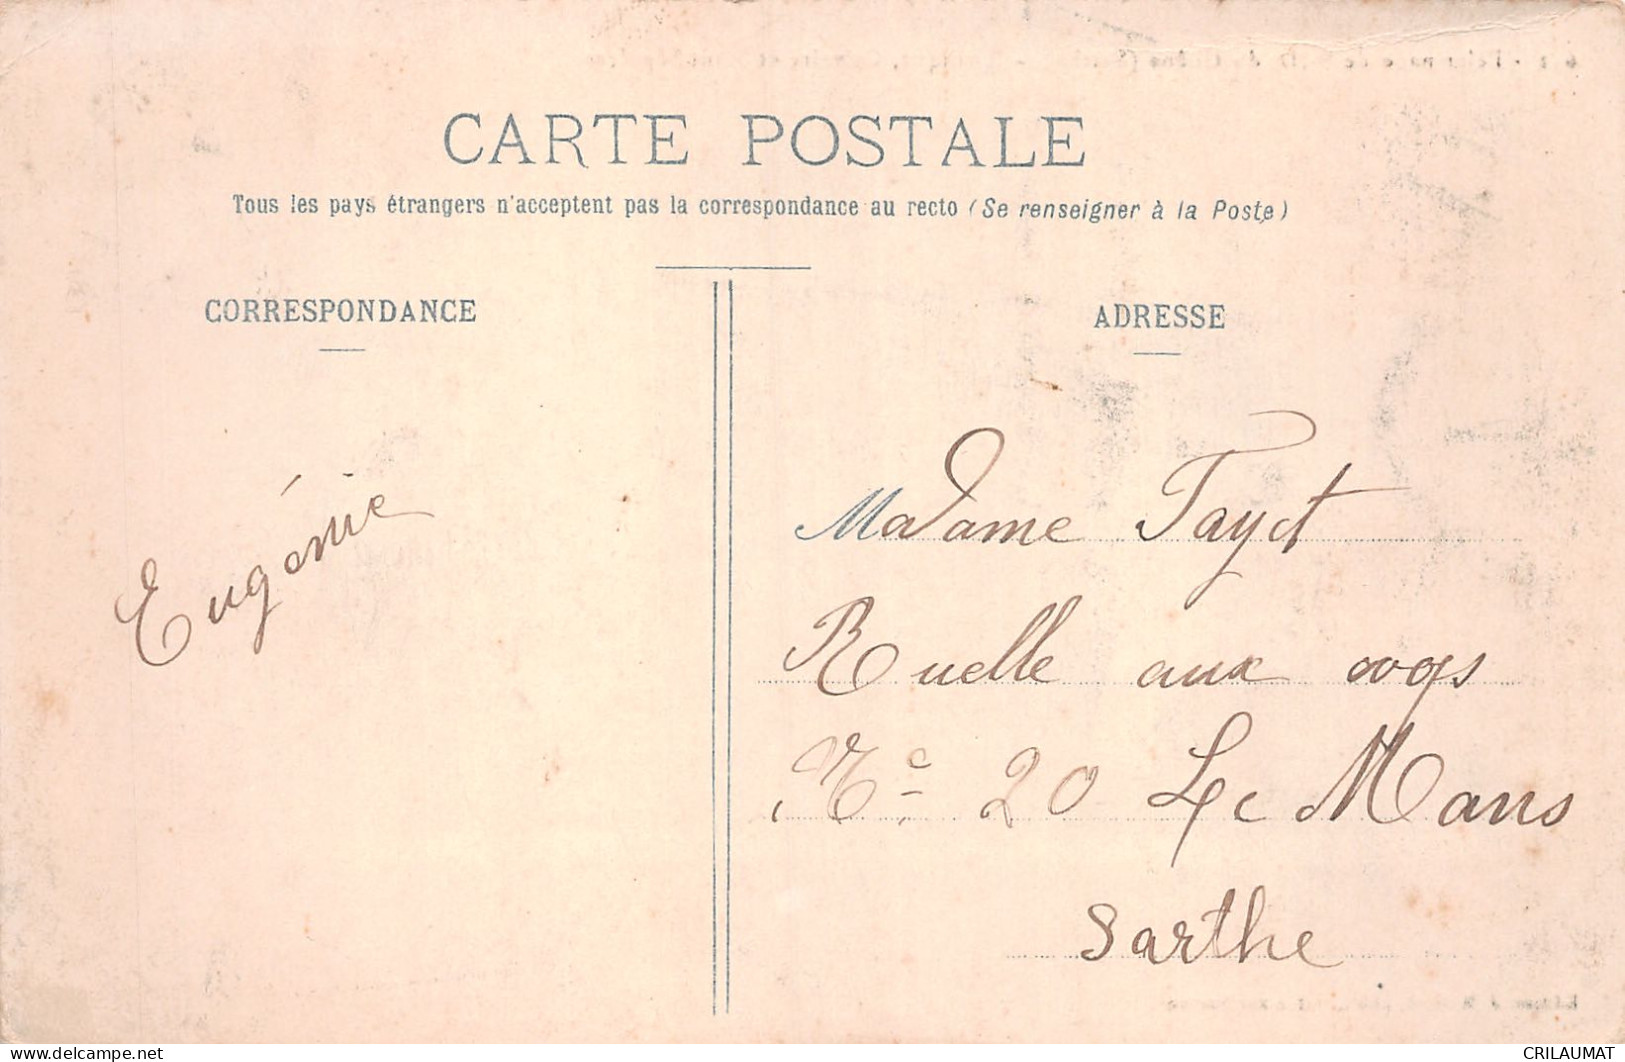 CARTE POSTALE
Tous les pays étrangers n'acceptent pas la correspondance au recto (Se renseigner à la Poste)
CORRESPONDANCE
ADRESSE
Eugénie
Madame Tayct
Ruelle aux
Nº 20 Le Mans
Sarthe
delcampe.net
CRILAUMAT